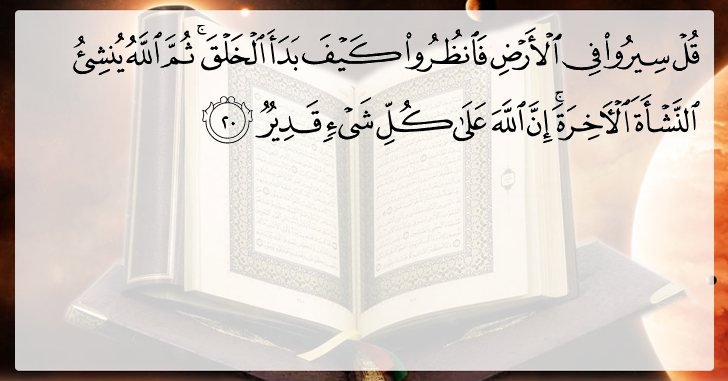 قُلْ سِيرُوا۟ فِى ٱلْأَرْضِ فَٱنظُرُوا۟ كَيْفَ بَدَأَ ٱلْخَلْقَ ۚ ثُمَّ ٱللَّهُ يُنشِئُ
ٱلنَّشْأَةَ ٱلْـَٔاخِرَةَ ۚ إِنَّ ٱللَّهَ عَلَىٰ كُلِّ شَىْءٍ قَدِيرٌ ٢٠